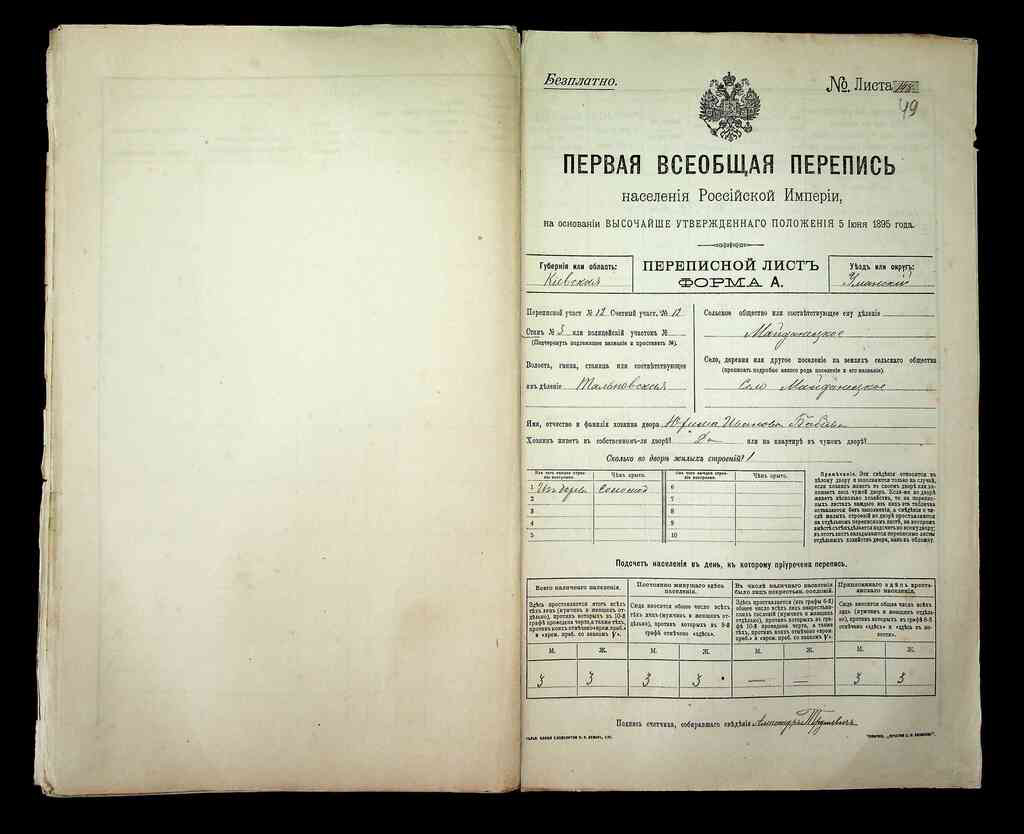 Безплатно.
№ Листа
49
ПЕРВАЯ ВСЕОБЩАЯ ПЕРЕПИСЬ
населенія Россійской Имперіи,
на основаніи ВЫСОЧАЙШЕ УТВЕРЖДЕННАГО ПОЛОЖЕНІЯ 5 Іюня 1895 года.
Губернія или область:
Кіевская
ПЕРЕПИСНОЙ ЛИСТЪ
ФОРМА А.
Уѣздъ или округъ:
Уманскій
Переписной участ № 12 Счетный участ. № 12
Станъ № 3 или полицейскій участокъ №
(Подчеркнуть подлежащее названіе и проставить №).
Волость, гмина, станица или соотвѣтствующее
имъ дѣленіе Тальновская
Сельское общество или соотвѣтствующее ему дѣленіе
Майданецкое
Село, деревня или другое поселеніе на земляхъ сельскаго общества
(прописать подробно какого рода поселеніе и его названіе).
Село Майданецкое
Имя, отчество и фамилія хозяина двора Иванова
Хозяинъ живетъ въ собственномъ-ли дворѣ? Да или на квартирѣ въ чужомъ дворѣ?
Сколько во дворѣ жилыхъ строеній? 1
Изъ чего каждое строеніе построено. Чѣмъ крыто. Изъ чего каждое строеніе построено. Чѣмъ крыто.
1 Изъ дерева Соломой 6
2 7
3 8
4 9
5 10
Примѣчаніе. Эти свѣдѣнія относятся къ
цѣлому двору и заполняются только въ случаѣ,
если хозяинъ живетъ въ своемъ дворѣ или занимаетъ весь чужой дворъ. Если-же во дворѣ
живетъ нѣсколько хозяйствъ, то на переписныхъ листахъ каждаго изъ нихъ эта табличка
оставляется безъ заполненія, а свѣдѣнія о числѣ жилыхъ строеній во дворѣ проставляются
на отдѣльномъ переписномъ листѣ, на которомъ
вмѣстѣ съ тѣмъ дѣлается подсчетъ по всему двору;
въ этотъ листъ вкладываются переписные листы
отдѣльныхъ хозяйствъ двора, какъ въ обложку.
Подсчетъ населенія въ день, къ которому пріурочена перепись.
Всего наличнаго населенія.
Здѣсь проставляется итогъ всѣхъ
тѣхъ лицъ (мужчинъ и женщинъ отдѣльно), противъ которыхъ въ 10-й
графѣ проведена черта, а также тѣхъ,
противъ коихъ отмѣчено «врем. проб.»
и «врем. проб. со знакомъ V».
Постоянно живущаго здѣсь
населенія.
Сюда вносится общее число всѣхъ
тѣхъ лицъ (мужчинъ и женщинъ отдѣльно), противъ которыхъ въ 9-й
графѣ отмѣчено «здѣсь».
Въ числѣ наличнаго населенія
было лицъ некрестьян. сословій.
Здѣсь проставляется (изъ графы 6-й)
общее число всѣхъ лицъ некрестьянскихъ сословій (мужчинъ и женщинъ
отдѣльно), противъ которыхъ въ
графѣ 10-й проведена черта, а также
тѣхъ, противъ коихъ отмѣчено «врем.
проб.» и «врем. проб. со знакомъ V».
Приписаннаго здѣсь крестьянскаго населенія.
Сюда вносится общее число всѣхъ
лицъ (мужчинъ и женщинъ отдѣльно), противъ которыхъ въ графѣ 8
отмѣчено «здѣсь» и «здѣсь въ волости».
М. Ж. М. Ж. М. Ж. М. Ж.
3 3 3 3 — — 3 3
Подпись счетчика, собиравшаго свѣдѣнія